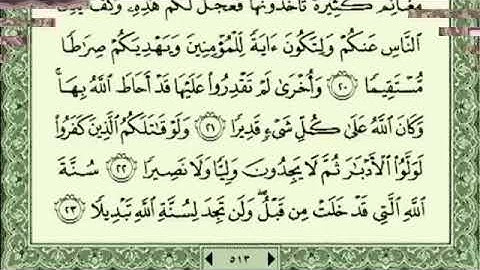 مَغَانِمَ كَثِيرَةً تَأْخُذُونَهَا فَعَجَّلَ لَكُمْ هَٰذِهِۦ وَكَفَّ أَيْدِىَ
ٱلنَّاسِ عَنكُمْ وَلِتَكُونَ ءَايَةً لِّلْمُؤْمِنِينَ وَيَهْدِيَكُمْ صِرَٰطًا
مُّسْتَقِيمًا ٢٠ وَأُخْرَىٰ لَمْ تَقْدِرُوا۟ عَلَيْهَا قَدْ أَحَاطَ ٱللَّهُ بِهَا ۚ
وَكَانَ ٱللَّهُ عَلَىٰ كُلِّ شَىْءٍ قَدِيرًا ٢١ وَلَوْ قَٰتَلَكُمُ ٱلَّذِينَ كَفَرُوا۟
لَوَلَّوُا۟ ٱلْأَدْبَٰرَ ثُمَّ لَا يَجِدُونَ وَلِيًّا وَلَا نَصِيرًا ٢٢ سُنَّةَ
ٱللَّهِ ٱلَّتِى قَدْ خَلَتْ مِن قَبْلُ ۖ وَلَن تَجِدَ لِسُنَّةِ ٱللَّهِ تَبْدِيلًا ٢٣
٥١٣